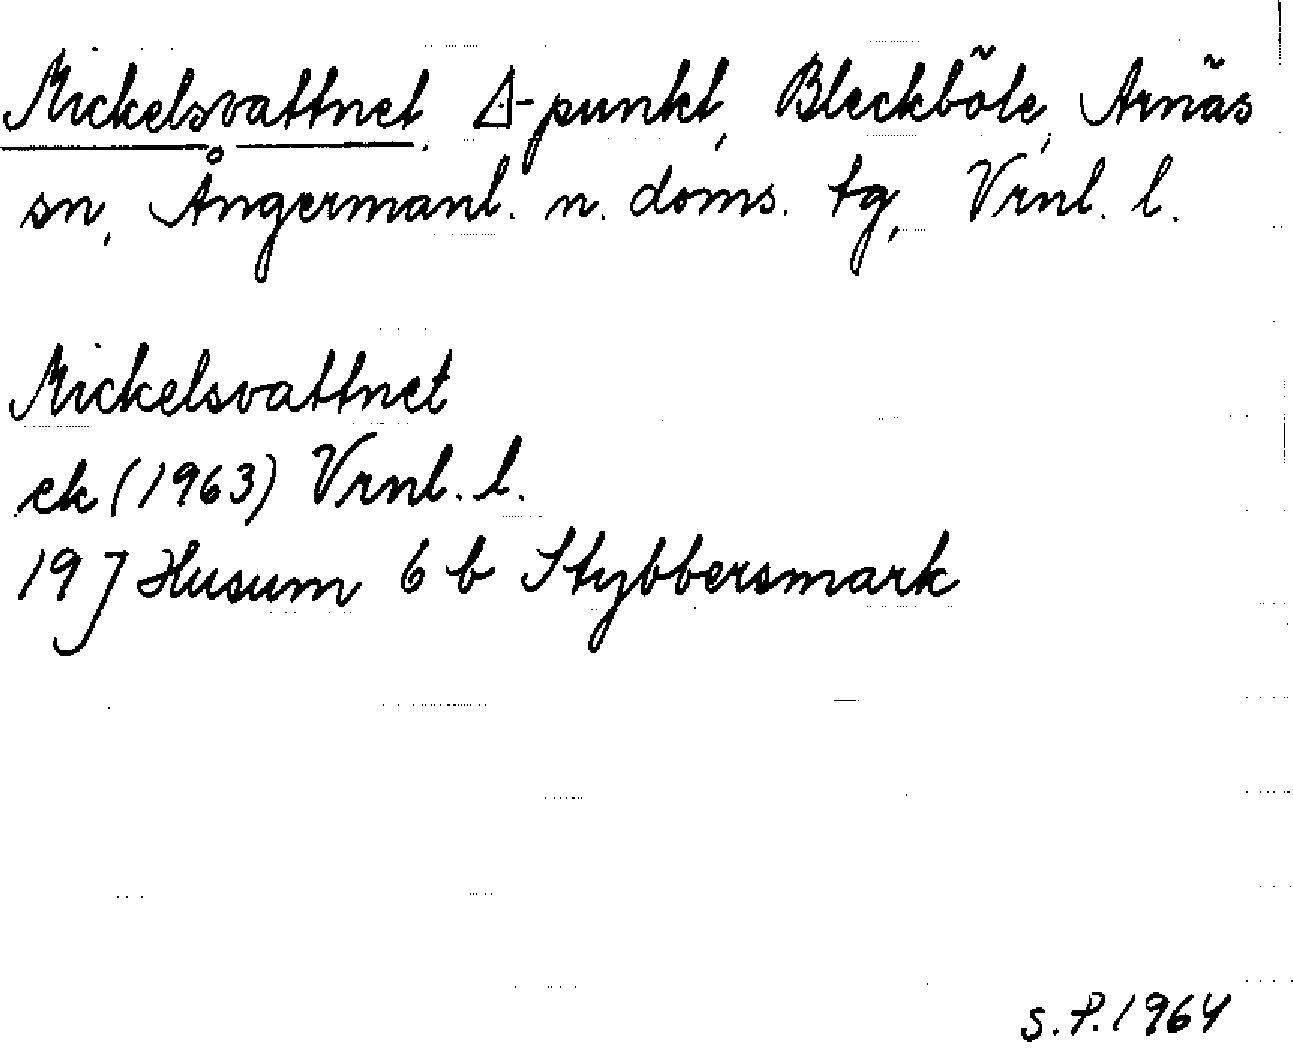 Mickelsvattnet, Δ-punkt, Bleckböle, Arnäs
sn, Ångermanl. n. doms. tg, Vrnl. l.
Mickelsvattnet
ek (1963) Vrnl. l.
19 J Husum 6 b Stybbersmark
S.P. 1964